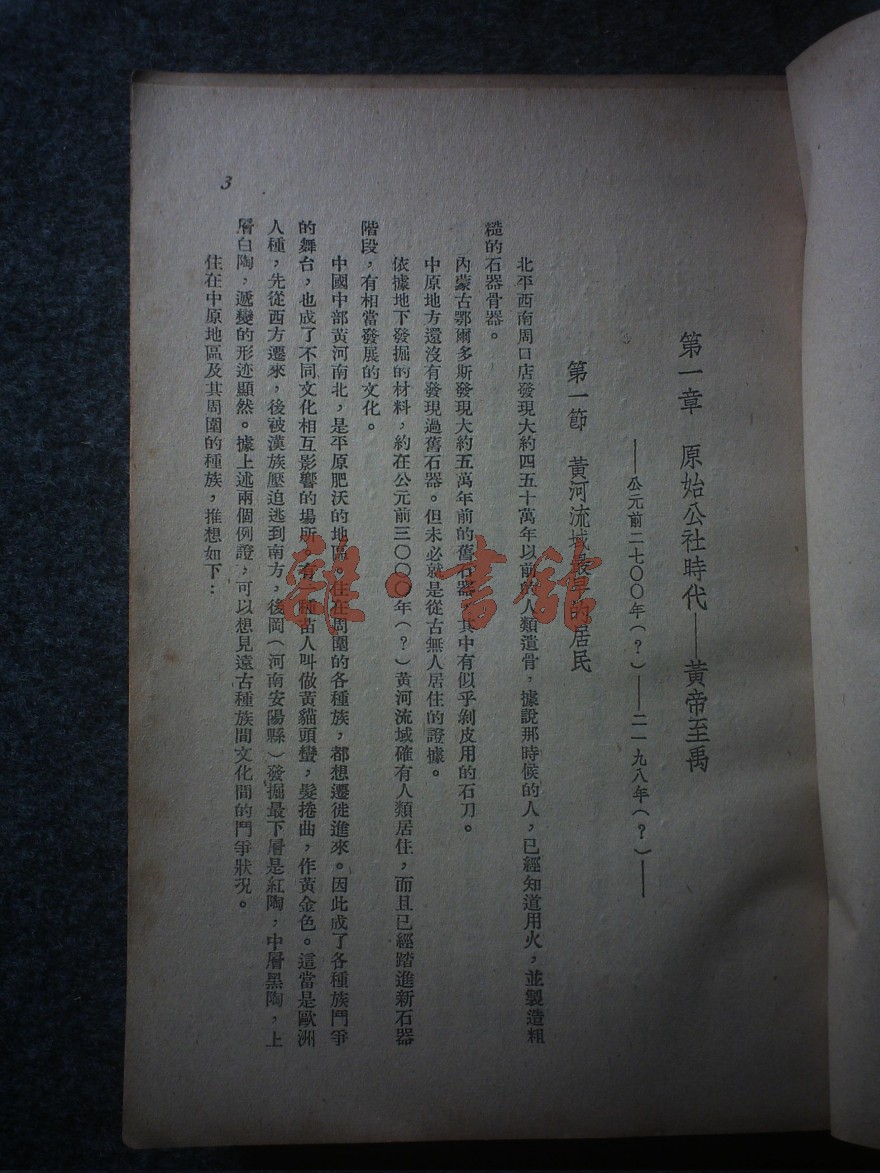 第一章　原始公社時代——黃帝至禹
——公元前二七〇〇年(？)——二一九八年(？)——
第一節　黃河流域最早的居民
北平西南周口店發現大約四五十萬年以前的人類遺骨，據說那時候的人，已經知道用火，並製造粗
糙的石器骨器。
內蒙古鄂爾多斯發現大約五萬年前的舊石器，其中有似乎剝皮用的石刀。
中原地方還沒有發現過舊石器。但未必就是從古無人居住的證據。
依據地下發掘的材料，約在公元前三〇〇〇年(？)黃河流域確有人類居住，而且已經踏進新石器
階段，有相當發展的文化。
中國中部黃河南北，是平原肥沃的地區。住在周圍的各種族，都想遷徙進來。因此成了各種族鬥爭
的舞台，也成了不同文化相互影響的場所。有一種苗人叫做黃貓頭蠻，髮捲曲，作黃金色。這當是歐洲
人種，先從西方遷來，後被漢族壓迫逃到南方，後岡(河南安陽縣)發掘最下層是紅陶，中層黑陶，上
層白陶，遞變的形迹顯然。據上述兩個例證，可以想見遠古種族間文化間的鬥爭狀況。
住在中原地區及其周圍的種族，推想如下：
3
雜·書館